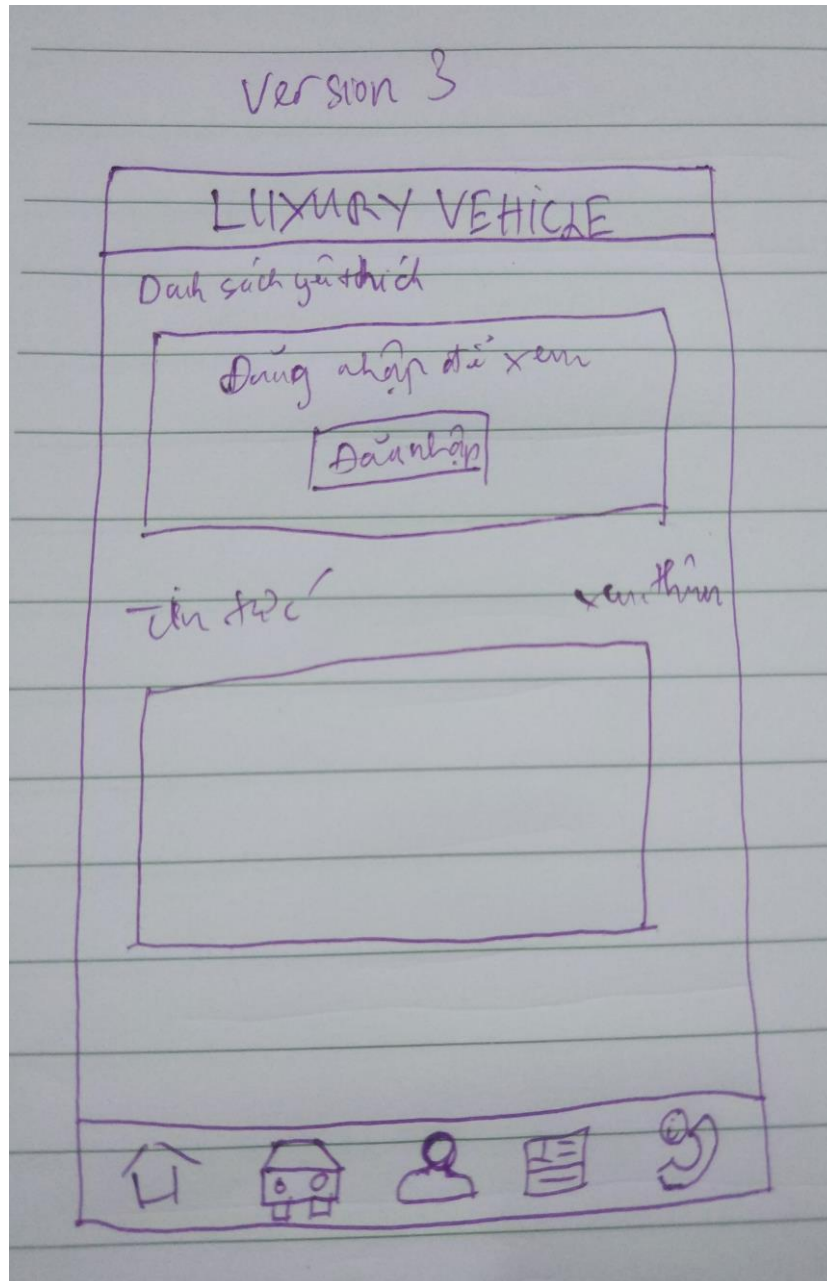 Version 3
LUXURY VEHICLE
Danh sách yêu thích
Đăng nhập để xem
Đăng nhập
Tin tức
xem thêm